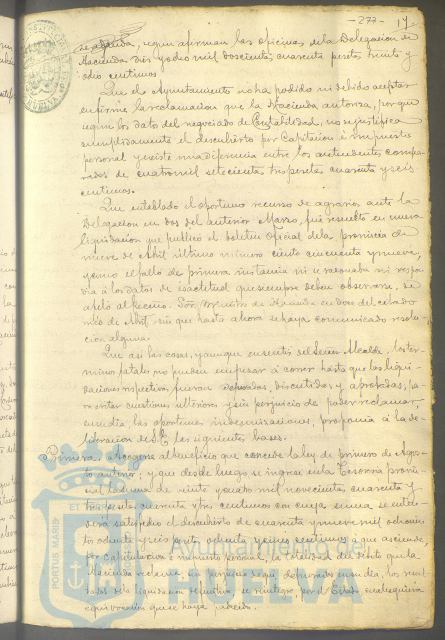 - 277 - 17
se adeuda, segun afirman las oficinas de la Delegacion de
Hacienda diez y ocho mil doscientas cuarenta pesetas treinta y
ocho centimos.
Que el Ayuntamiento no ha podido ni debido aceptar
en firme la reclamacion que la Hacienda autoriza, porque
segun los datos del negociado de Contabilidad, no se justifica
cumplidamente el descubierto por Capitacion é impuesto
personal y existe una diferencia entre los antecedentes compa-
rados de cuatro mil setecientas tres pesetas cuarenta y seis
centimos.
Que entablado el oportuno recurso de agravios ante la
Delegacion en dos del anterior Marzo, fué resuelto en nueva
liquidacion que publicó el Boletin Oficial de la provincia de
nueve de Abril último número ciento cuarenta y nueve,
y como el fallo de primera instancia ni se razonaba ni respon-
dia á los datos de exactitud que siempre deben observarse, se
apeló al Excmo. Sor. Ministro de Hacienda en dos del citado
mes de Abril sin que hasta ahora se haya comunicado resolu-
cion alguna.
Que asi las cosas, y aunque en sentir del Señor Alcalde, los ter-
minos fatales no pueden empezar á correr hasta que las liqui-
daciones respectivas fueran depuradas, discutidas y aprobadas, pa-
ra evitar cuestiones ulteriores y sin perjuicio de poder reclamar,
en su dia, las oportunas indemnizaciones, proponia á la de-
liberacion del las siguientes bases.
Primera: Acogerse al beneficio que concede la ley de primero de Agos-
to anterior, y que desde luego se ingrese en la Tesoreria provin-
cial la suma de veinte y cuatro mil novecientas cuarenta y
tres pesetas cuarenta y tres centimos con cuya suma se enten-
derá satisfecho el descubierto de cuarenta y nueve mil ochocien-
tas ochenta y seis pesetas ochenta y cinco centimos á que asciende,
por capitacion é impuesto personal, la totalidad del débito que la
Hacienda reclama, sin perjuicio de que depurados en su dia, los resul-
tados de la liquidacion definitiva se reintegre por el Estado cualesquiera
equivocacion que se haya padecido.
HUELVA
PORTUS MARIS ET
Ayuntamiento de
HUELVA